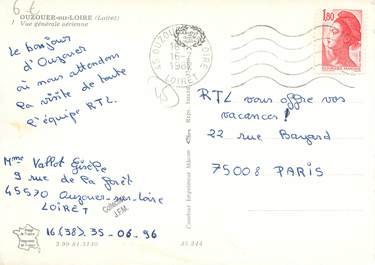 6 €
OUZOUER-sur-LOIRE (Loiret)
1 Vue générale aérienne
Le bonjour
d'Ouzouer
où nous attendons
la visite de toute
l'équipe RTL.
Mme Vallot Gisèle
9 rue de la forêt
45570 Ouzouer-sur-Loire
LOIRET
16(38).35-06-96
45 OUZOUER LOIRE
LOIRET
45
1,80
RTL vous offre vos
vacances!
22 rue Bayard
75008 PARIS
Collection
JFM
Combier Imprimeur Mâcon